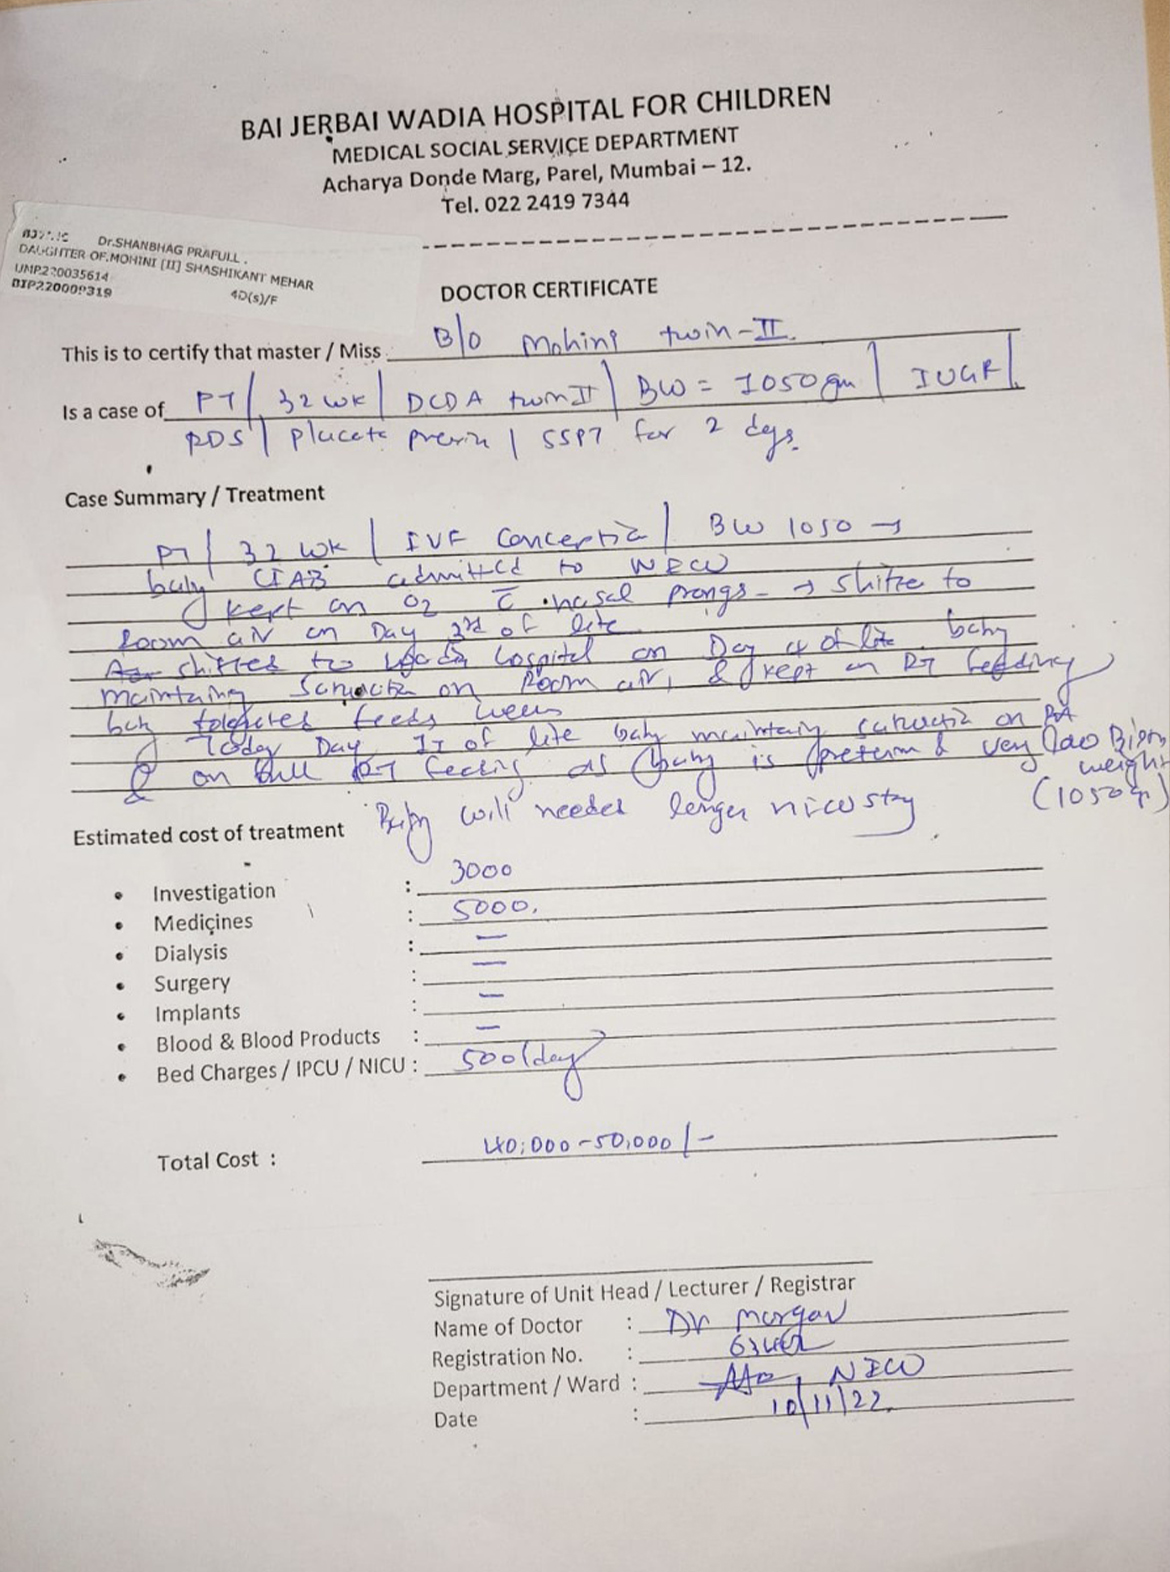 BAI JERBAI WADIA HOSPITAL FOR CHILDREN
MEDICAL SOCIAL SERVICE DEPARTMENT
Acharya Donde Marg, Parel, Mumbai – 12.
Tel. 022 2419 7344
Dr.SHANBHAG PRAFULL .
DAUGHTER OF.MOHINI [II] SHASHIKANT MEHAR
UMP220035614
BIP220009319 4D(s)/F
DOCTOR CERTIFICATE
This is to certify that master / Miss B/O Mohini twin-II.
Is a case of PT / 32 wk / DCDA twin II / BW = 1050 gm / IUGR /
RDS / placeta previa / SSPT for 2 days.
Case Summary / Treatment
PT / 32 wk / IVF Conceptio / BW 1050 →
baby CIAB admitted to NICU
kept on O2 c̄ nasal prongs → shifte to
Room air on Day 3rd of life
shifted to Wadia hospital on Day 4 of life baby
maintaining on Room air, & kept on RT feeding
baby tolerated feeds
Today Day of life baby maintaing on RA
& on full RT feeding as baby is preterm & very low Birth
weight
(1050 gm)
Baby will needed longer nicu stay
Estimated cost of treatment
• Investigation : 3000
• Medicines : 5000.
• Dialysis : —
• Surgery : —
• Implants : —
• Blood & Blood Products : —
• Bed Charges / IPCU / NICU : 500/day
Total Cost : 40,000-50,000/-
Signature of Unit Head / Lecturer / Registrar
Name of Doctor : Dr
Registration No. :
Department / Ward : NICU
Date : 10/11/22.